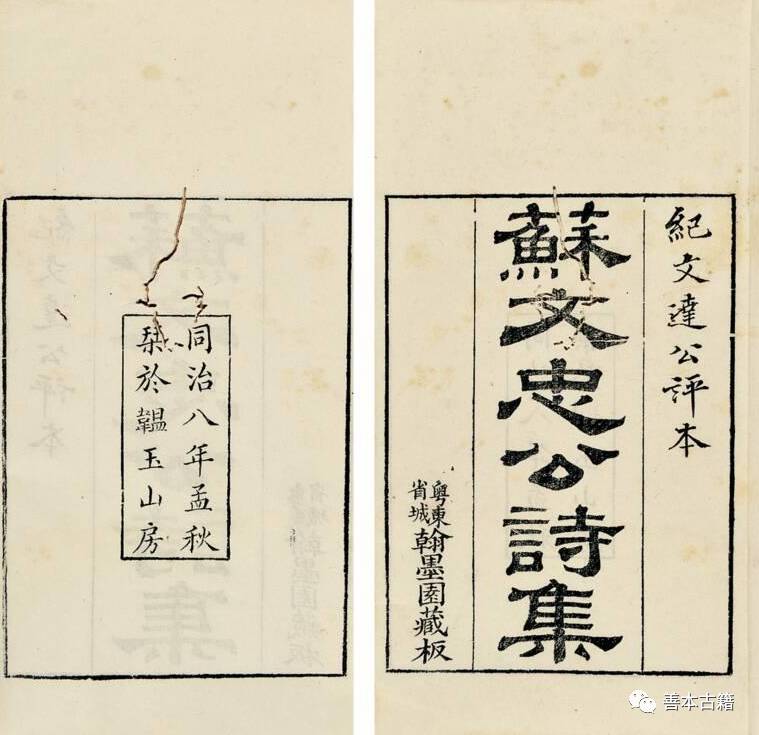 紀文達公評本
蘇文忠公詩集
粵東
省城
翰墨園藏板
同治八年孟秋
栞於韞玉山房
善本古籍